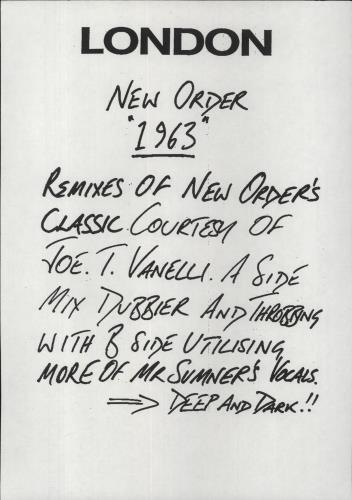 LONDON
NEW ORDER
"1963"
REMIXES OF NEW ORDER'S
CLASSIC COURTESY OF
JOE. T. VANELLI. A SIDE
MIX DUBBIER AND THROBBING
WITH B SIDE UTILISING
MORE OF MR SUMNER'S VOCALS.
⇒ DEEP AND DARK.!!